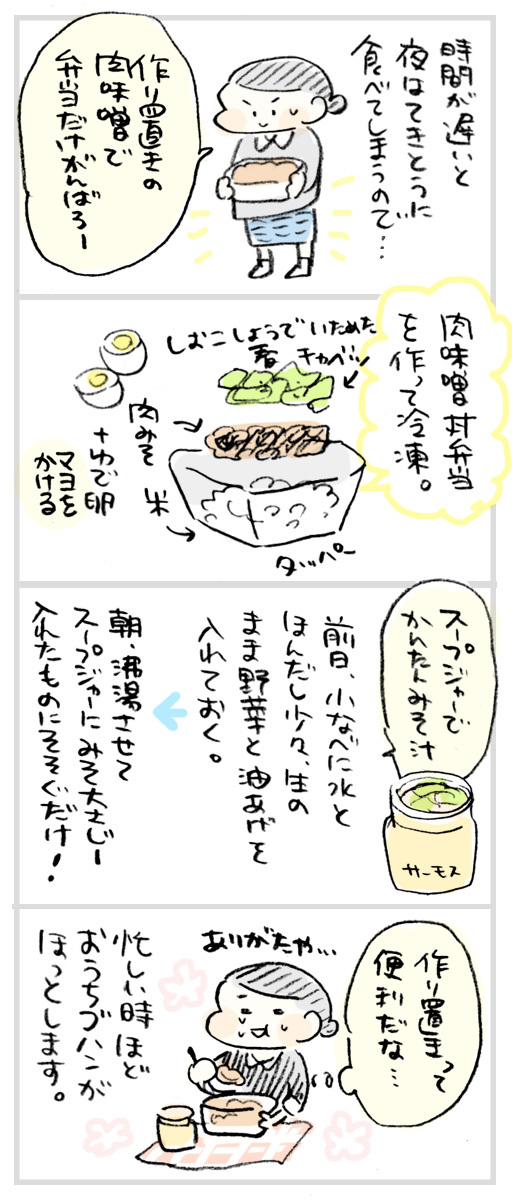 時間が遅いと
夜はてきとうに
食べてしまうので…
作り置きの
肉味噌で
弁当だけがんばろー
肉味噌丼弁当
を作って冷凍。
しおこしょうでいためた
春キャベツ
肉みそ
米
+ゆで卵
マヨを
かける
タッパー
スープジャーで
かんたんみそ汁
サーモス
前日、小なべに水と
ほんだし少々、生の
まま野菜と油あげを
入れておく。
朝、沸湯させて
スープジャーにみそ大さじ一
入れたものにそそぐだけ!
作り置きって
便利だな…
ありがたや…
忙しい時ほど
おうちゴハンが
ほっとします。